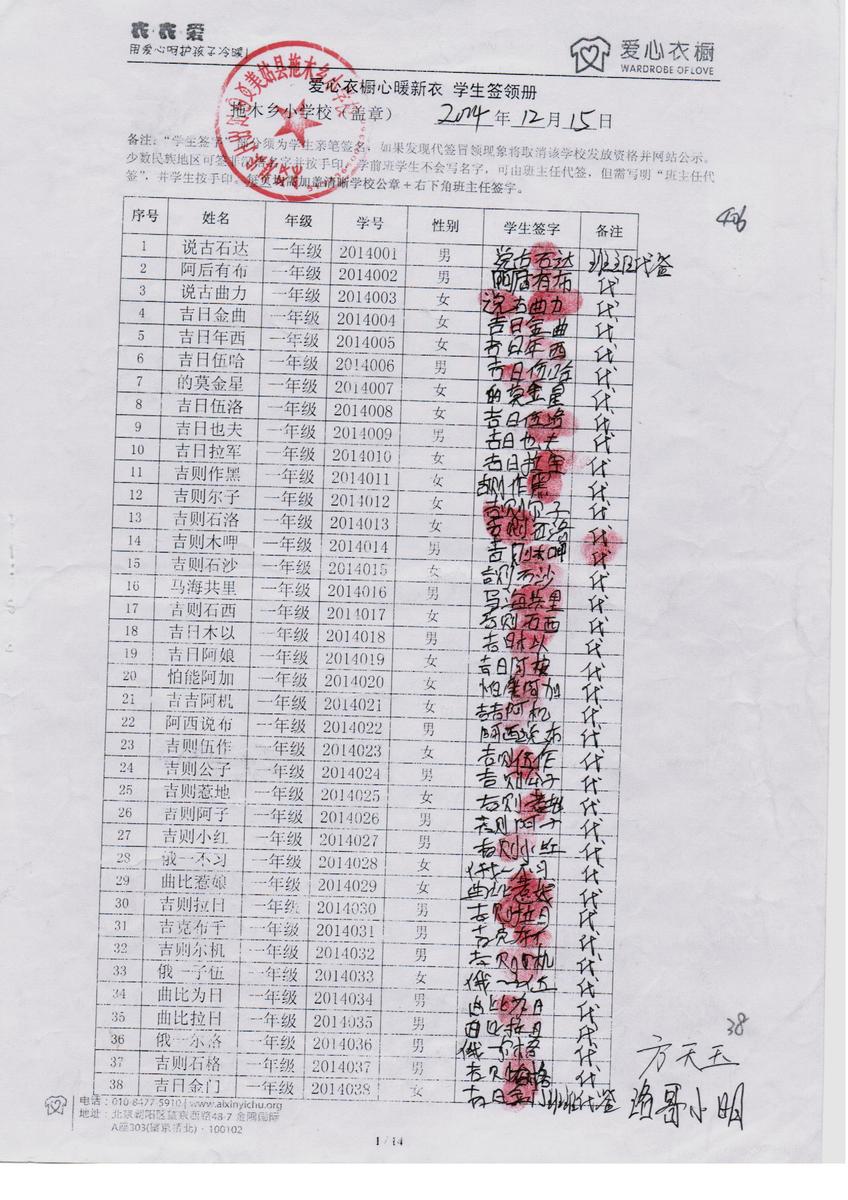 衣·衣爱
用爱心呵护孩子冷暖!
爱心衣橱
WARDROBE OF LOVE
爱心衣橱心暖新衣 学生签领册
拖木乡小学校（盖章） 2014年12月15日
少数民族地区可签
签”，并学生按手印。每页均需加盖清晰学校公章+右下角班主任签字。
406
序号 姓名 年级 学号 性别 学生签字 备注
1 说古石达 一年级 2014001 男 说古石达 班主任代签
2 阿后有布 一年级 2014002 男 阿后有布 代
3 说古曲力 一年级 2014003 女 说古曲力 代
4 吉日金曲 一年级 2014004 女 吉日金曲 代
5 吉日年西 一年级 2014005 女 吉日年西 代
6 吉日伍哈 一年级 2014006 男 吉日伍哈 代
7 的莫金星 一年级 2014007 女 的莫金星 代
8 吉日伍洛 一年级 2014008 女 吉日伍洛 代
9 吉日也夫 一年级 2014009 男 吉日也夫 代
10 吉日拉军 一年级 2014010 女 吉日拉军 代
11 吉则作黑 一年级 2014011 女 吉则作黑 代
12 吉则尔子 一年级 2014012 女 吉则尔子 代
13 吉则石洛 一年级 2014013 女 吉则石洛 代
14 吉则木呷 一年级 2014014 男 吉则木呷 代
15 吉则石沙 一年级 2014015 女 吉则石沙 代
16 马海共里 一年级 2014016 男 马海共里 代
17 吉则石西 一年级 2014017 女 吉则石西 代
18 吉日木以 一年级 2014018 男 吉日木以 代
19 吉日阿娘 一年级 2014019 女 吉日阿娘 代
20 怕能阿加 一年级 2014020 女 怕能阿加 代
21 吉吉阿机 一年级 2014021 女 吉吉阿机 代
22 阿西说布 一年级 2014022 男 阿西说布 代
23 吉则伍作 一年级 2014023 女 吉则伍作 代
24 吉则公子 一年级 2014024 男 吉则公子 代
25 吉则惹地 一年级 2014025 女 吉则惹地 代
26 吉则阿子 一年级 2014026 男 吉则阿子 代
27 吉则小红 一年级 2014027 男 吉则小红 代
28 俄一不习 一年级 2014028 女 俄一不习 代
29 曲比惹娘 一年级 2014029 女 曲比惹娘 代
30 吉则拉日 一年级 2014030 男 吉则拉日 代
31 吉克布千 一年级 2014031 男 吉克布千 代
32 吉则尔机 一年级 2014032 男 吉则尔机 代
33 俄一子伍 一年级 2014033 女 代
34 曲比为日 一年级 2014034 男 曲比为日 代
35 曲比拉日 一年级 2014035 男 曲比拉日 代
36 俄一尔洛 一年级 2014036 男 代
37 吉则石格 一年级 2014037 男 代
38 吉日金门 一年级 2014038 女 吉日金门 代签
38
方天玉
洛哥小明
电话：010-8477-5910 | www.aixinyichu.org
地址：北京朝阳区望京西路48-7 金隅国际
A座303(望京清北)·100102
1 / 14